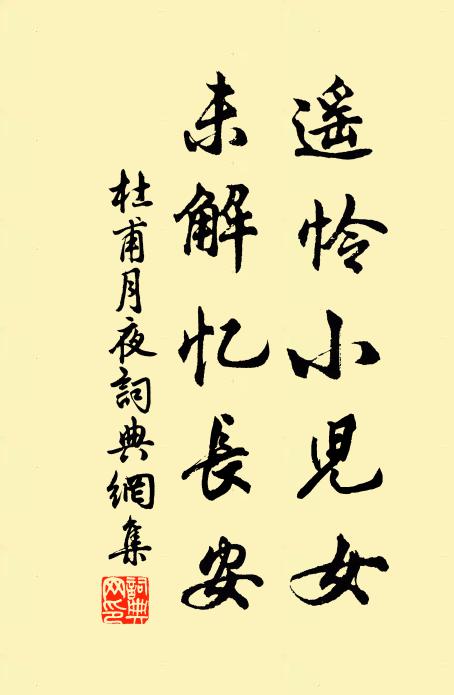 遥怜小兒女
未解忆長安
杜甫月夜詞典網集
詞典網印